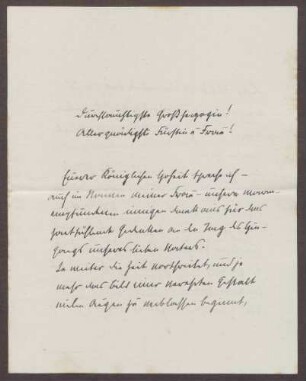 Durchlauchtigste Großherzogin!
Allergnädigste Fürstin u Frau!
Eurer Königlichen Hoheit spreche ich –
auch im Namen meiner Frau – unsern warm
empfundenen innigen Dank aus für das
Gedenken an den Tag des Heim-
gangs unseres lieben Vaters.
Je weiter die Zeit fortschreitet, und je
mehr das Bild einer verehrten Gestalt
vielen Augen zu verblassen beginnt,